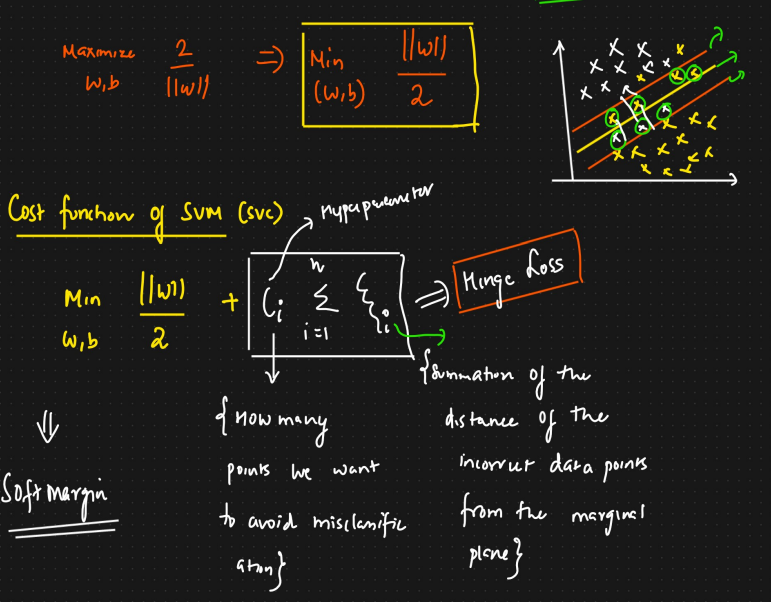 Maximize 2/||w|| ⇒ Min ||w||/2
w,b (w,b)
Cost function of SVM (SVC)
Hyperparameter
Min ||w||/2 + Ci Σ ξi ⇒ Hinge Loss
w,b n i=1
{How many
points we want
to avoid misclassific
ation}
{Summation of the
distance of the
incorrect data points
from the marginal
plane}
Soft margin